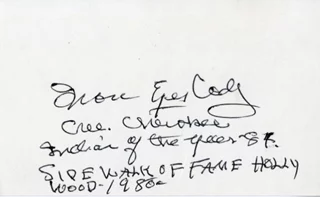 Iron Eyes Cody
Cree. Cherokee
Indian of the year 84.
SIDEWALK OF FAME HOLLY
WOOD-1980